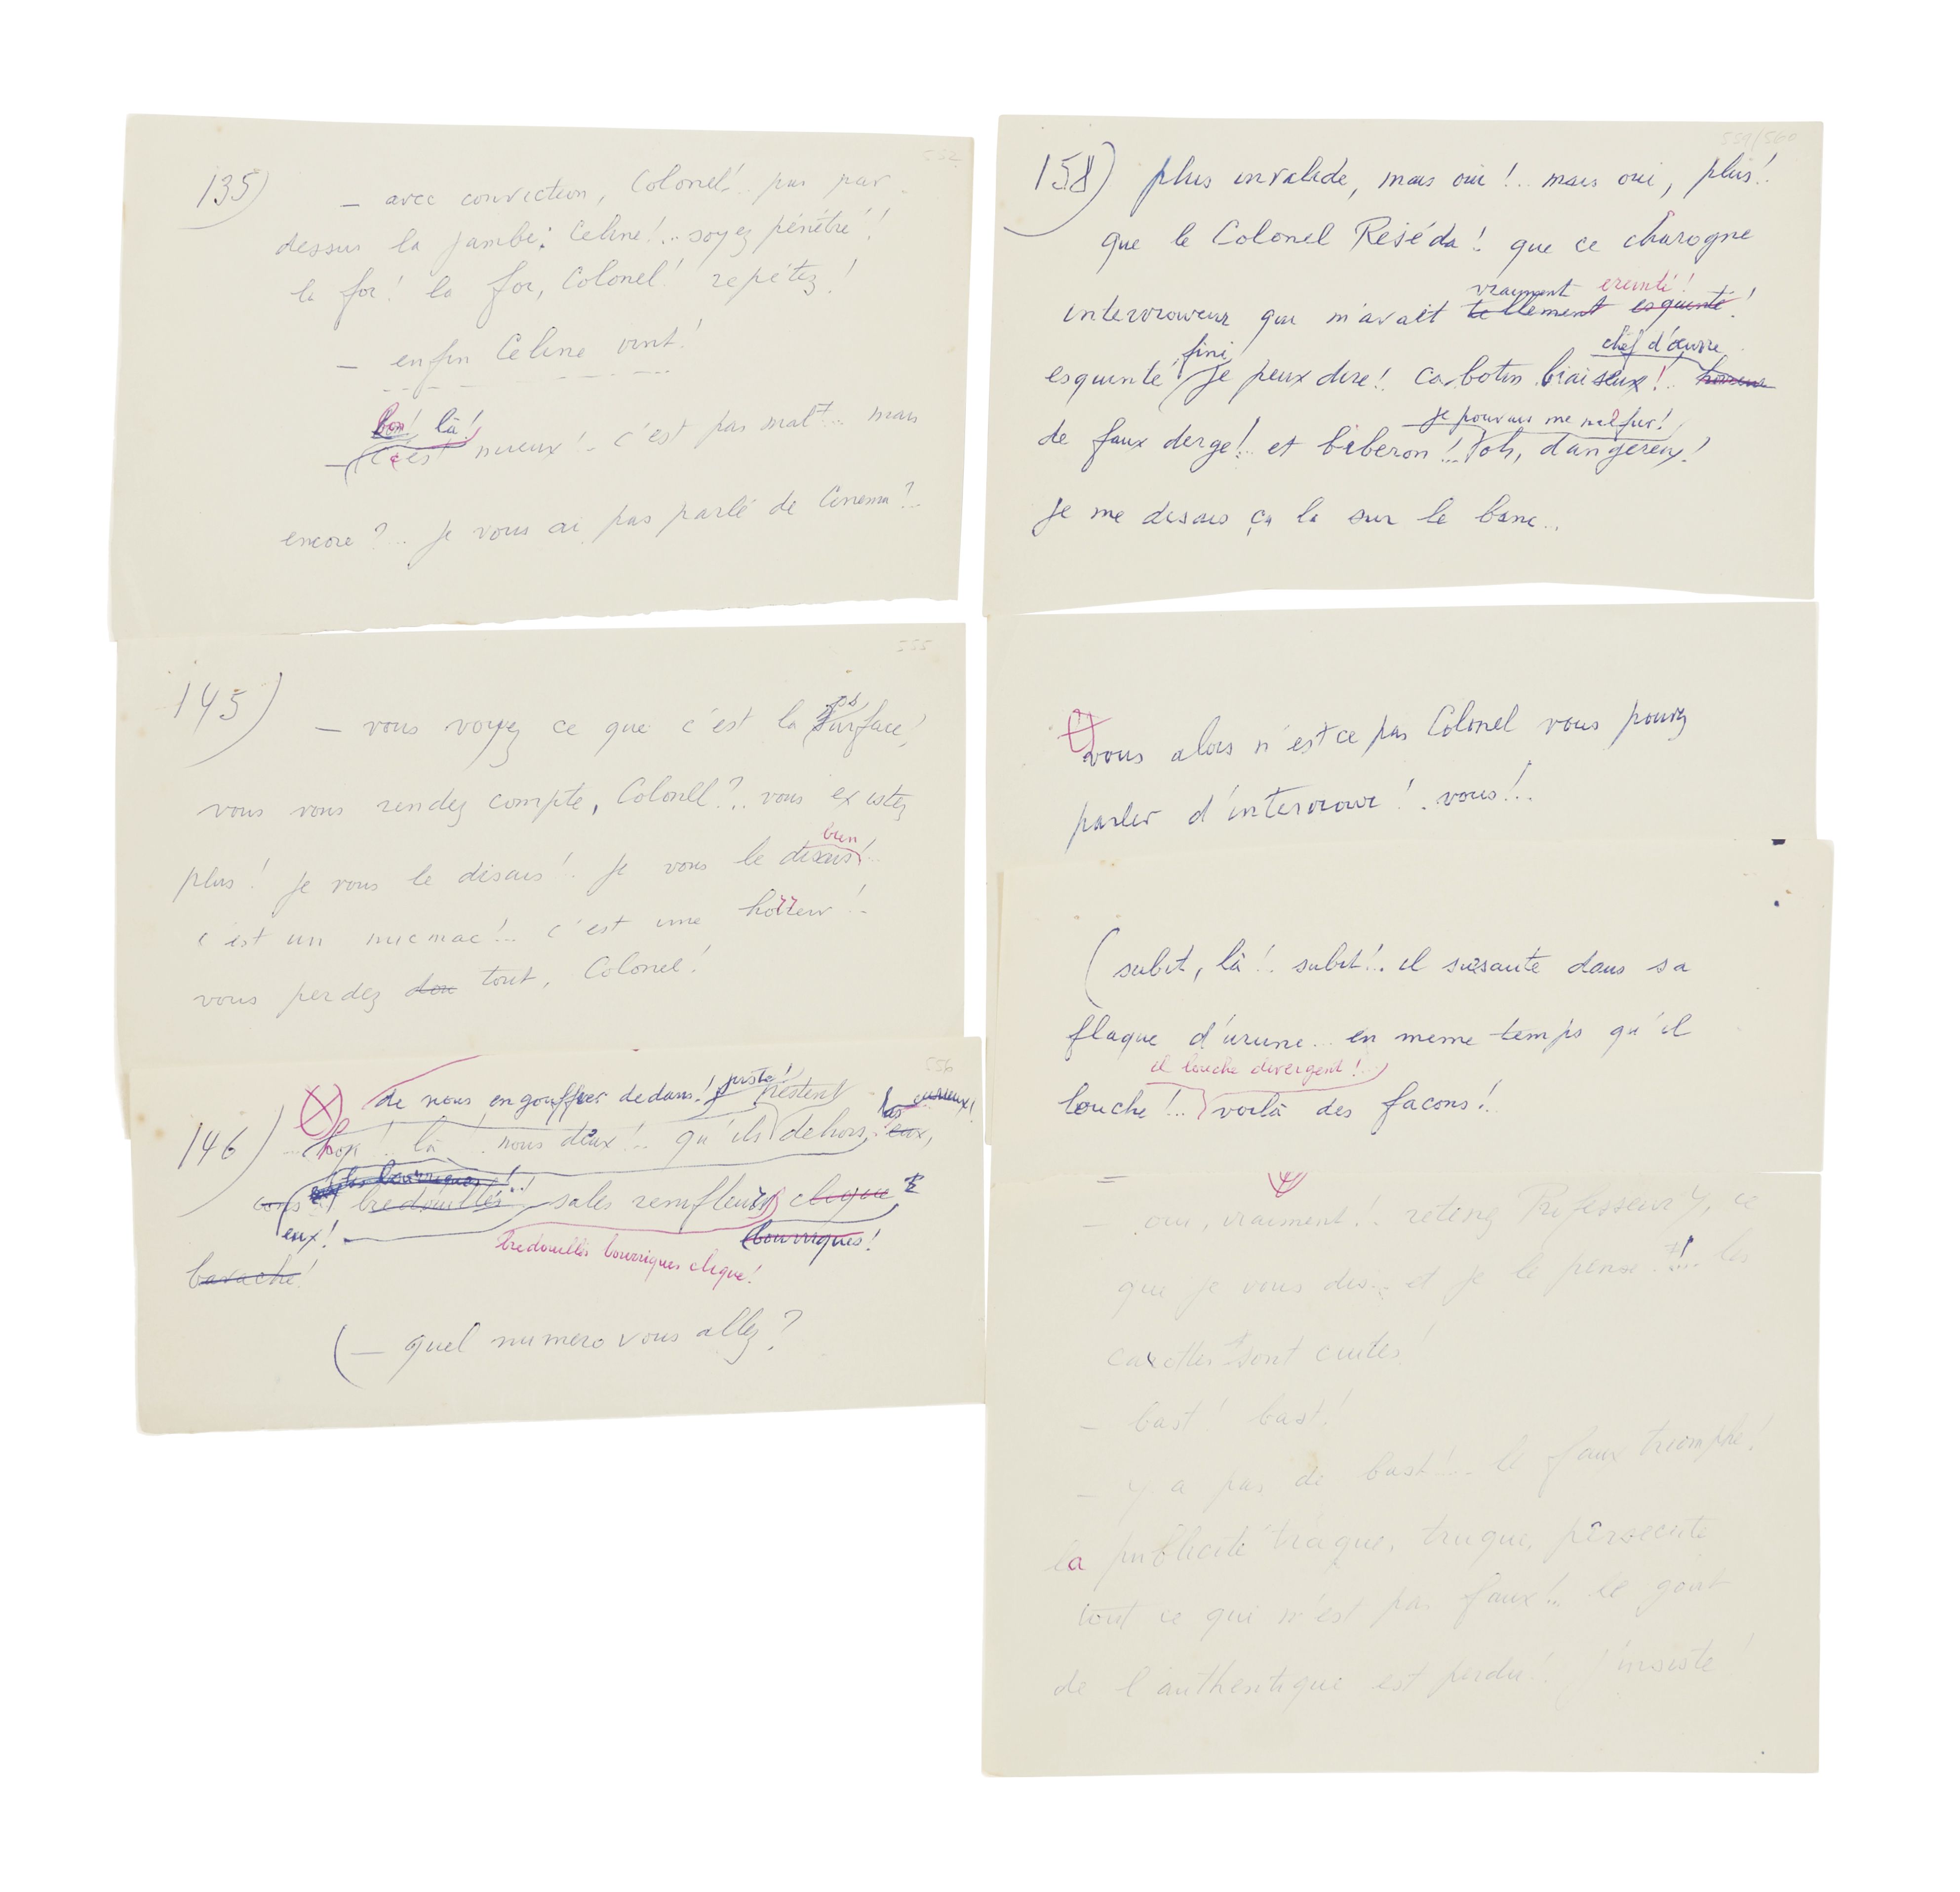 552
135)
— avec conviction, Colonel!.. pas par-
dessus la jambe: Celine!... soyez pénétré!
la foi! la foi, Colonel! repétez!
— enfin Celine vint!
bon! là!
— c'est mieux!.. c'est pas mal!... mais
encore?... je vous ai pas parlé de Cinema?..
555
145)
— vous voyez ce que c'est la surface!
vous vous rendez compte, Colonel?.. vous existez
bien
plus! je vous le disais! je vous le disais!..
c'est un micmac!.. c'est une horreur!..
vous perdez tout, Colonel!
556
de nous engouffrer dedans! juste! restent
les curieux!
146)
...hop!.. là! nous deux!.. qu'ils dehors, eux,
les bourriques!..!
cons bredouilles sales renifleurs clique
eux!
bourriques!
bredouilles bourriques clique!
bavache!
(— quel numero vous allez?
559/560
158) plus invalide, mais oui!.. mais oui, plus!.
que le Colonel Réséda! que ce charogne
vraiment ereinté!
interviouveur qui m'avait tellement esquinté!
fini
chef d'œuvre
esquinté je peux dire! cabotin biaiseux!.. horreur
je pouvais me mefier!
de faux derge!.. et biberon!.. oh, dangereux!
je me disais ça là sur le banc..
vous alors n'est ce pas Colonel vous pouvez
parler d'interviouve!.. vous!..
(subit, là!.. subit!.. il sursaute dans sa
flaque d'urine... en meme temps qu'il
il louche divergent!..
louche!... voilà des facons!..
— oui, vraiment!.. retenez Professeur Y, ce
que je vous dis... et je le pense!... les
carottes sont cuites!
— bast! bast!
— y a pas de bast!... le faux triomphe!
la publicité traque, truque, persecute
tout ce qui n'est pas faux!.. le gout
de l'authentique est perdu!.. j'insiste!